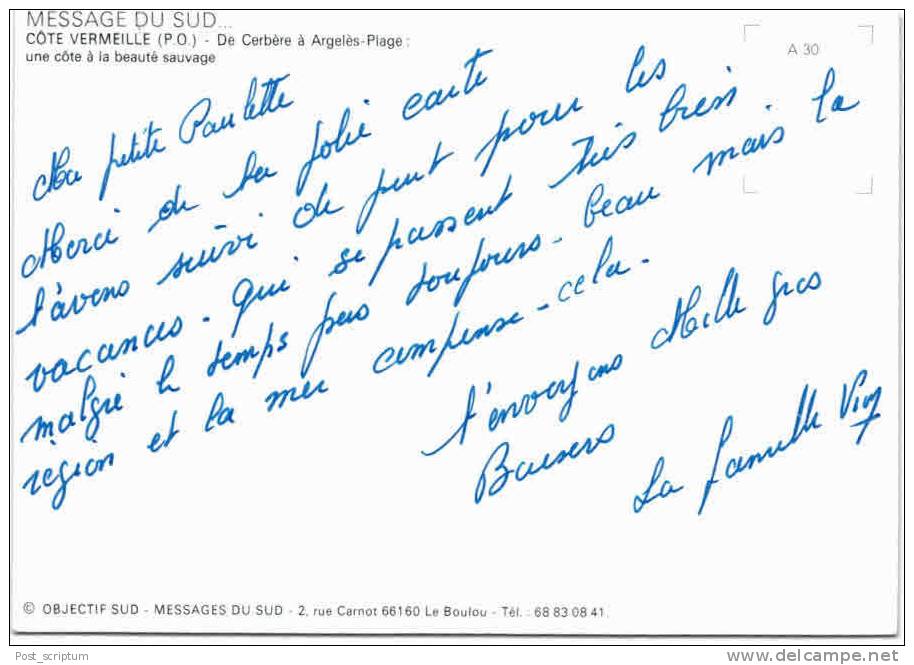 MESSAGE DU SUD...
CÔTE VERMEILLE (P.O.) - De Cerbère à Argelès-Plage :
une côte à la beauté sauvage
A 30
Ma petite Paulette
Merci de ta jolie carte
t'avons suivi de peut pour les
vacances. qui se passent très bien.
malgré le temps pas toujours beau mais la
région et la mer compense cela.
t'envoyons Mille gros
Baisers
La famille
© OBJECTIF SUD - MESSAGES DU SUD - 2, rue Carnot 66160 Le Boulou - Tél. : 68 83 08 41.
Post_scriptum
delcampe.net